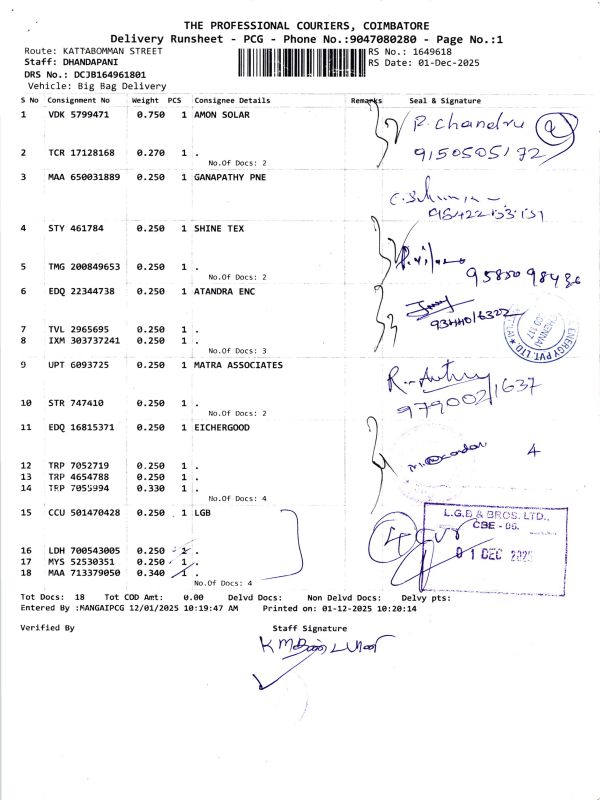 THE PROFESSIONAL COURIERS, COIMBATORE
Delivery Runsheet - PCG - Phone No.:9047080280 - Page No.:1
Route: KATTABOMMAN STREET RS No.: 1649618
Staff: DHANDAPANI RS Date: 01-Dec-2025
DRS No.: DCJB164961801
Vehicle: Big Bag Delivery
S No Consignment No Weight PCS Consignee Details Remarks Seal & Signature
1 VDK 5799471 0.750 1 AMON SOLAR
R. Chandru 2
2 TCR 17128168 0.270 1 . 9150505172
No.Of Docs: 2
3 MAA 650031889 0.250 1 GANAPATHY PNE
4 STY 461784 0.250 1 SHINE TEX
5 TMG 200849653 0.250 1 .
No.Of Docs: 2
6 EDQ 22344738 0.250 1 ATANDRA ENC
7 TVL 2965695 0.250 1 .
8 IXM 303737241 0.250 1 .
ENERGY PVT. LTD. CHENNAI
No.Of Docs: 3
9 UPT 6093725 0.250 1 MATRA ASSOCIATES
9790021637
10 STR 747410 0.250 1 .
No.Of Docs: 2
11 EDQ 16815371 0.250 1 EICHERGOOD
4
12 TRP 7052719 0.250 1 .
13 TRP 4654788 0.250 1 .
14 TRP 7055994 0.330 1 .
No.Of Docs: 4
15 CCU 501470428 0.250 1 LGB
L.G.B & BROS. LTD.,
CBE - 06.
4
16 LDH 700543005 0.250 1 .
01 DEC 2025
17 MYS 52530351 0.250 1 .
18 MAA 713379050 0.340 1 .
No.Of Docs: 4
Tot Docs: 18 Tot COD Amt: 0.00 Delvd Docs: Non Delvd Docs: Delvy pts:
Entered By :MANGAIPCG 12/01/2025 10:19:47 AM Printed on: 01-12-2025 10:20:14
Verified By Staff Signature